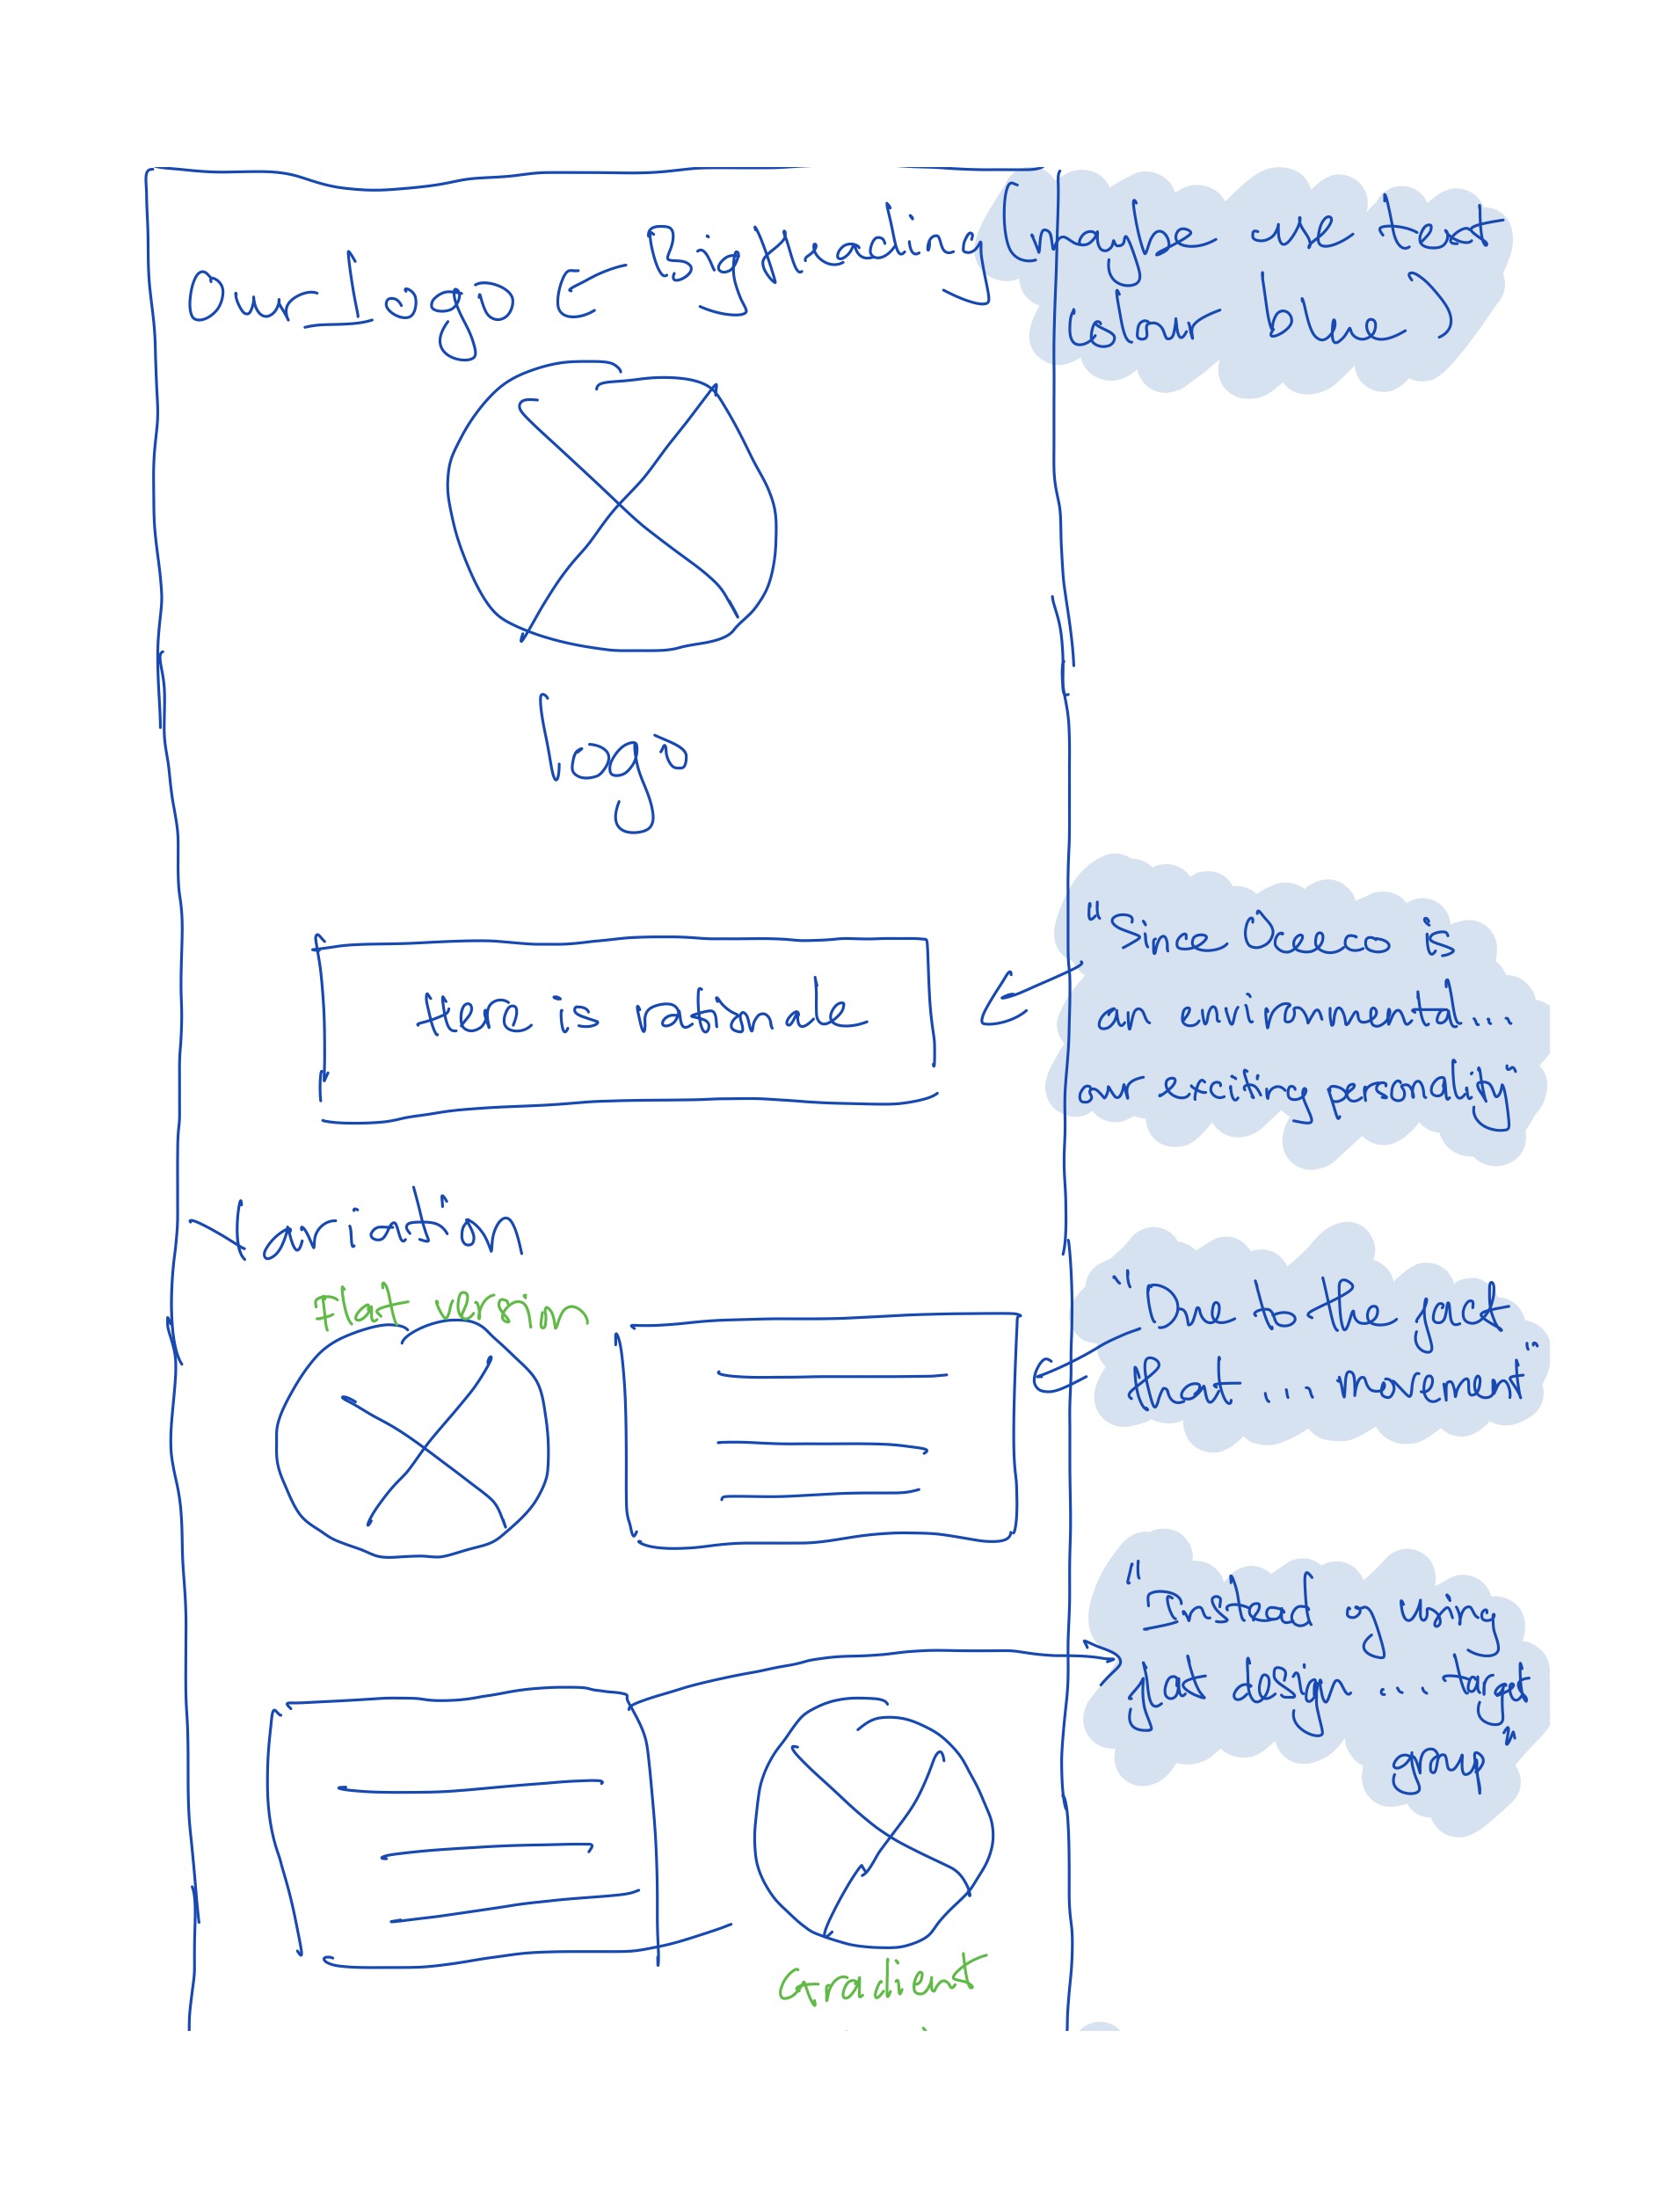 Our logo
Big heading
(maybe all text
colour blue)
logo
"Since Ocecco is
an environmental...
our exciting personality"
Here is rationale
Variation
Flat version
"Due to the fact
that .... movement"
"Instead of using
flat design .... target
group"
Gradient